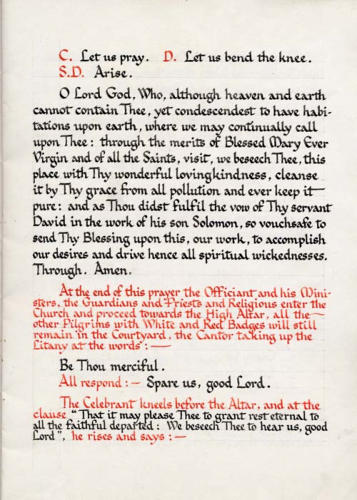 C. Let us pray. D. Let us bend the knee.
S.D. Arise.
O Lord God, Who, although heaven and earth
cannot contain Thee, yet condescendest to have habi-
tations upon earth, where we may continually call
upon Thee: through the merits of Blessed Mary Ever
Virgin and of all the Saints, visit, we beseech Thee, this
place with Thy wonderful lovingkindness, cleanse
it by Thy grace from all pollution and ever keep it
pure: and as Thou didst fulfil the vow of Thy servant
David in the work of his son Solomon, so vouchsafe to
send Thy Blessing upon this, our work, to accomplish
our desires and drive hence all spiritual wickednesses.
Through. Amen.
At the end of this prayer the Officiant and his Mini-
sters, the Guardians and Priests and Religious enter the
Church and proceed towards the High Altar, all the
other Pilgrims with White and Red Badges will still
remain in the Courtyard, the Cantor taking up the
Litany at the words:—
Be Thou merciful.
All respond:— Spare us, good Lord.
The Celebrant kneels before the Altar, and at the
clause "That it may please Thee to grant rest eternal to
all the faithful departed: We beseech Thee to hear us, good
Lord", he rises and says:—